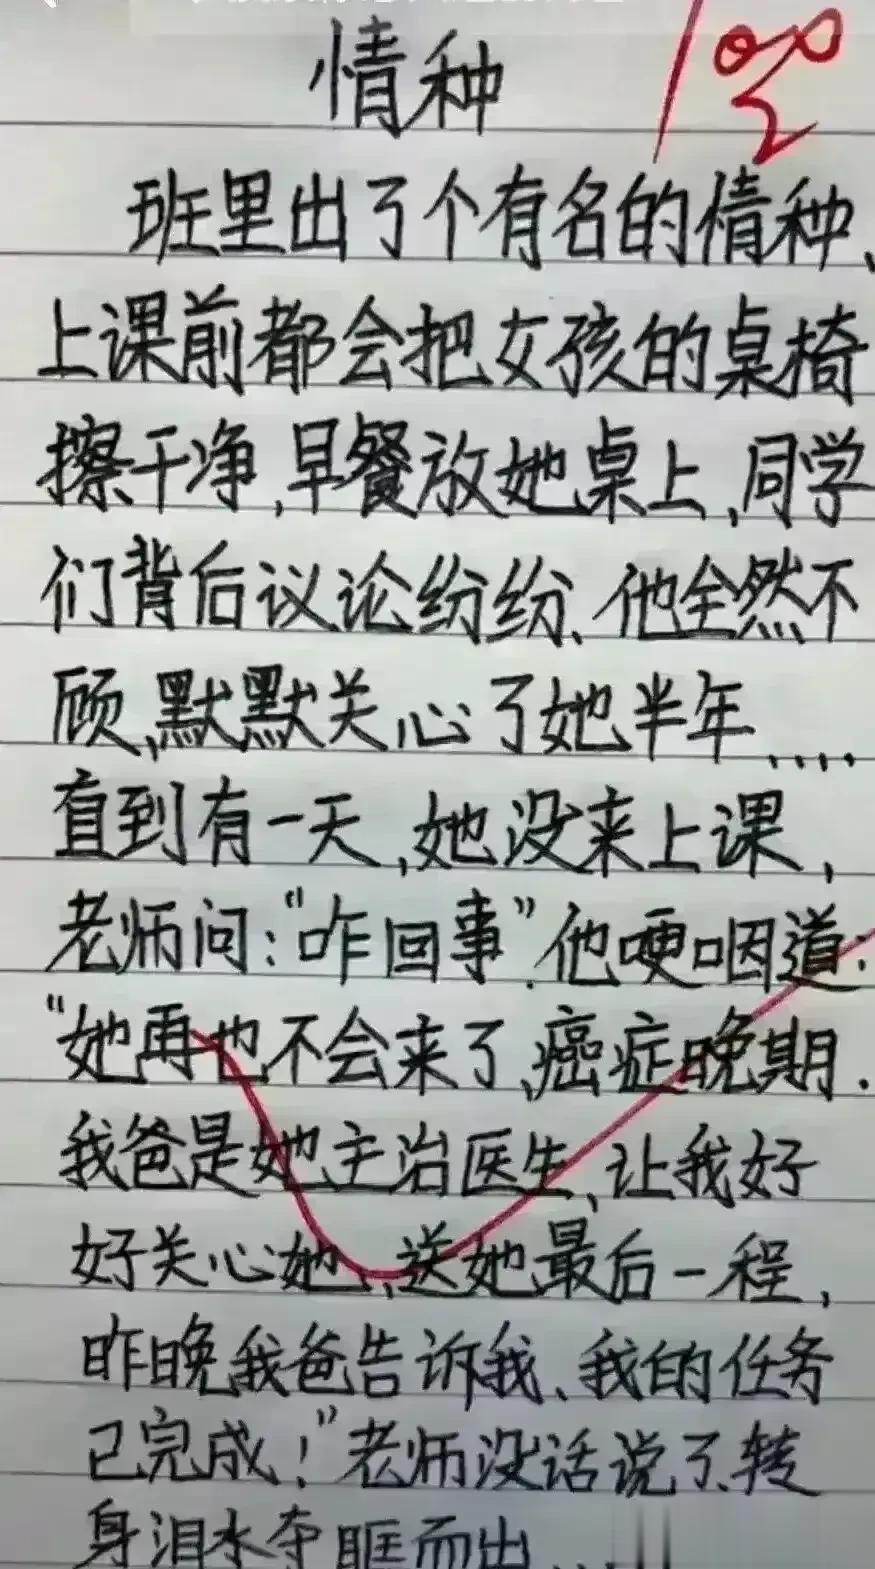 情种
100
班里出了个有名的情种、
上课前都会把女孩的桌椅
擦干净,早餐放她桌上,同学
们背后议论纷纷、他全然不
顾,默默关心了她半年....
直到有一天,她没来上课,
老师问:“咋回事”.他哽咽道:
“她再也不会来了,癌症晚期.
我爸是她主治医生、让我好
好关心她、送她最后一程,
昨晚我爸告诉我、我的任务
已完成!”老师没话说了、转
身泪水夺眶而出...